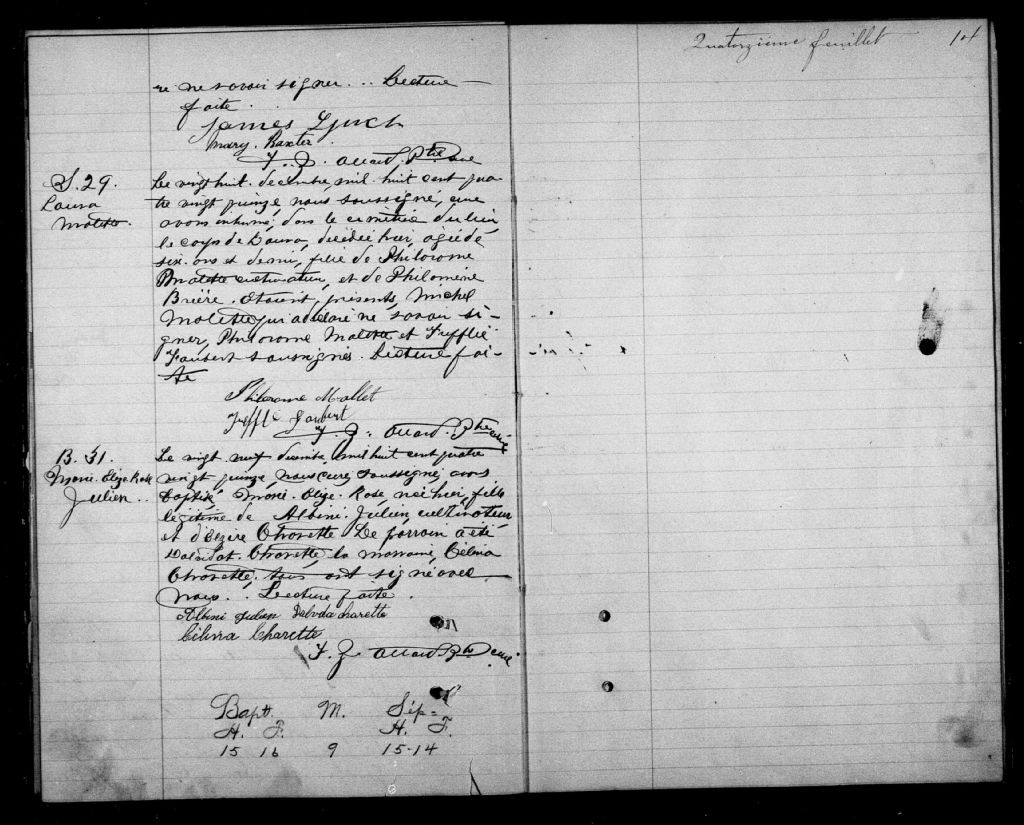 re ne savoir signer... Lecture
faite.
James Lynch
Mary Baxter
F. J. Allard Ptre curé
S. 29.
Laura
Malette.
Le vingt huit decembre mil huit cent qua
tre vingt quinze, nous soussigné, curé
avons inhumé, dans le cimetière du lieu
le corps de Laura, décédée hier, agée de
six ans et demi, fille de Philorome
Malette cultivateur, et de Philomène
Brière. Etaient présents, Michel
Malette qui a déclaré ne savoir si-
gner, Philorome Malette et Trefflé
Joubert soussignés. Lecture fai-
te
Philorome Mallet
Treffle Joubert
F. J. Allard Ptre curé
B. 31.
Marie. Eliza Rose
Julien..
Le vingt neuf decembre, mil huit cent quatre
vingt quinze, nous curé soussigné, avons
baptisé, Marie. Eliza. Rose, née hier, fille
légitime de Albini Julien, cultivateur
et d'Elzire Charette Le parrain a été
Charette, la marraine, Célina
Charette, tous ont signé avec
nous.. Lecture faite.
Albini Julien charette
Célina Charette
F. J. Allard Ptre curé
Bapt. M. Sép=
H. F. H. F.
15 16 9 15-14
Quatorzième feuillet 14